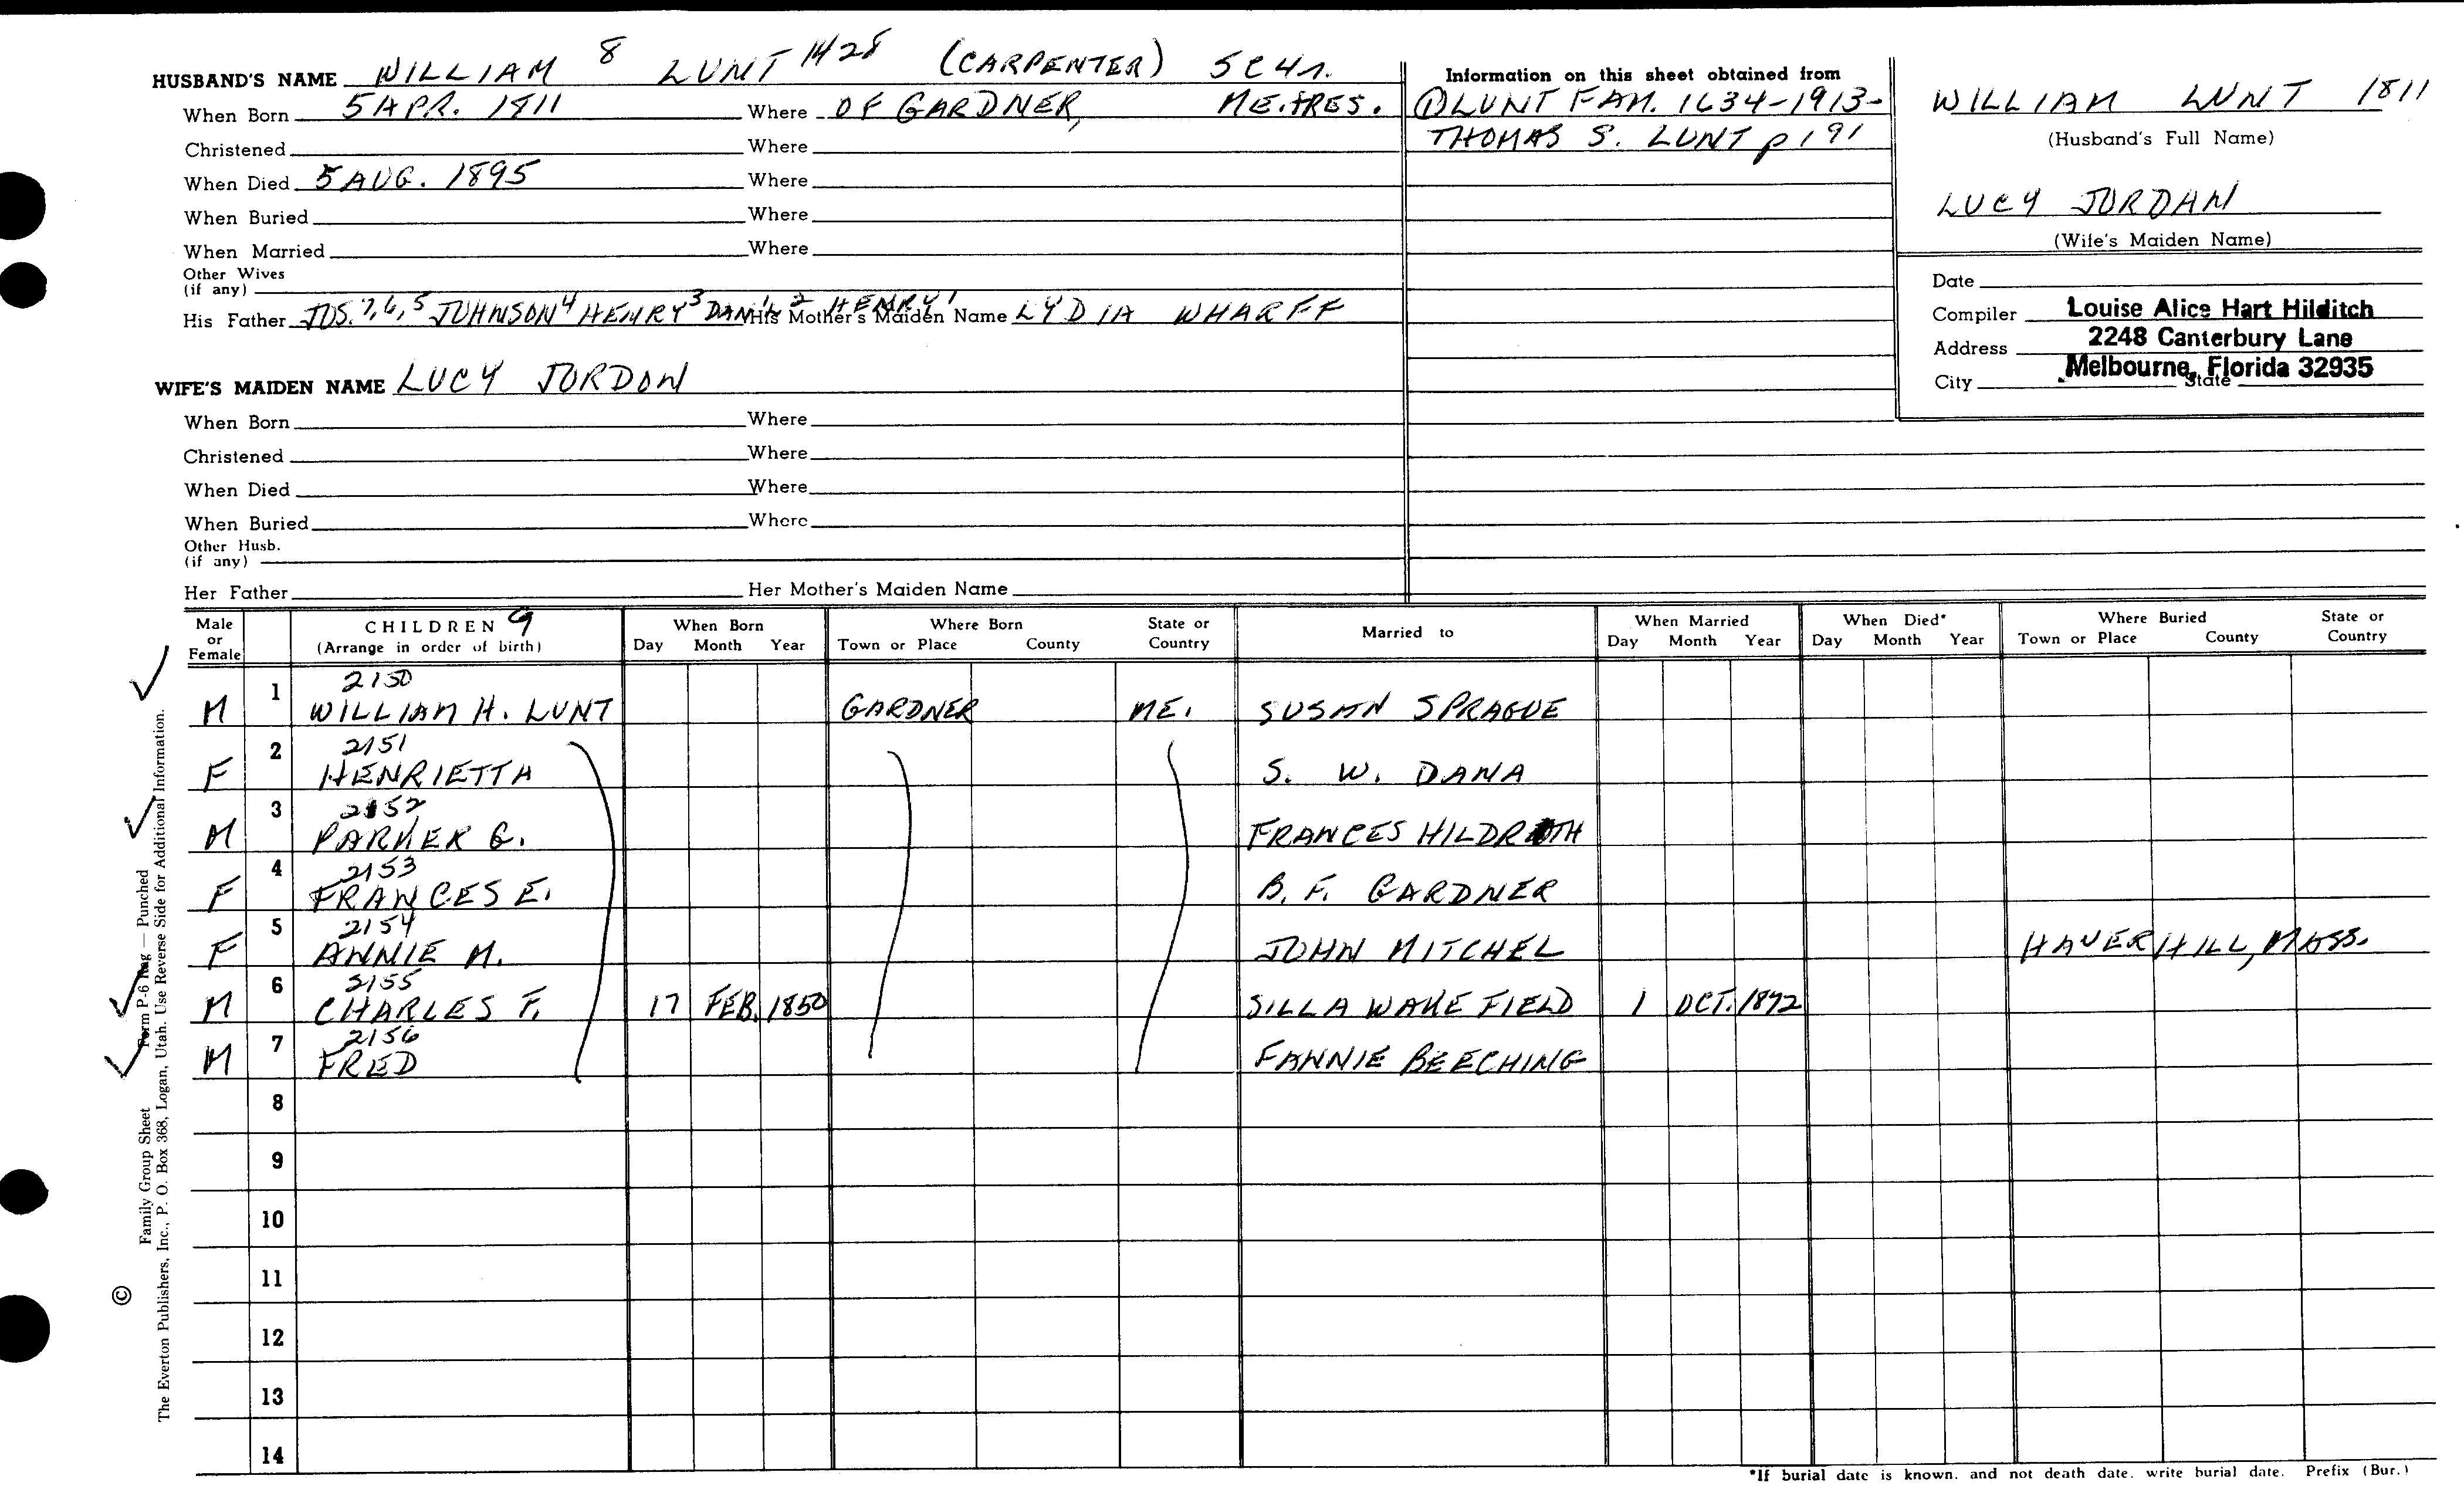 HUSBAND'S NAME WILLIAM 8 LUNT 1428 (CARPENTER)
When Born 5 APR. 1811 Where OF GARDNER, ME. & RES.
Christened Where
When Died 5 AUG. 1895 Where
When Buried Where
When Married Where
Other Wives
(if any)
His Father JOS. 7, 6, 5 JOHNSON 4 HENRY 3 DAN'L 2 HENRY 1 His Mother's Maiden Name LYDIA WHARFF
WIFE'S MAIDEN NAME LUCY JORDON
When Born Where
Christened Where
When Died Where
When Buried Where
Other Husb.
(if any)
Her Father Her Mother's Maiden Name
Information on this sheet obtained from
① LUNT FAM. 1634-1913-
THOMAS S. LUNT p 191
WILLIAM LUNT 1811
(Husband's Full Name)
LUCY JORDAN
(Wife's Maiden Name)
Date
Compiler Louise Alice Hart Hilditch
Address 2248 Canterbury Lane
City Melbourne, Florida 32935 State
Male or Female CHILDREN 9 (Arrange in order of birth) When Born Day Month Year Where Born Town or Place County State or Country Married to When Married Day Month Year When Died* Day Month Year Where Buried Town or Place County State or Country
2150
M 1 WILLIAM H. LUNT GARDNER ME. SUSAN SPRAGUE
2151
F 2 HENRIETTA S. W. DANA
2152
M 3 PARKER G. FRANCES HILDRETH
2153
F 4 FRANCES E. B. F. GARDNER
2154
F 5 ANNIE M. JOHN MITCHEL HAVERHILL, MASS.
2155
M 6 CHARLES F. 17 FEB. 1850 SILLA WAKEFIELD 1 OCT. 1872
2156
M 7 FRED FANNIE BEECHING
8
9
10
11
12
13
14
*If burial date is known, and not death date, write burial date. Prefix (Bur.)
Family Group Sheet Form P-6 Rag — Punched
© The Everton Publishers, Inc., P. O. Box 368, Logan, Utah. Use Reverse Side for Additional Information.